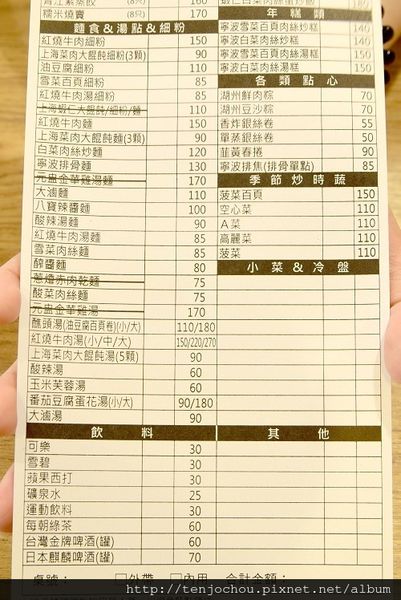 糯米燒賣 (8只) 170
麵食&湯點&細粉
紅燒牛肉細粉 150
上海菜肉大餛飩細粉(3顆) 90
油豆腐細粉 110
雪菜百頁細粉 85
紅燒牛肉湯細粉 85
上海蝦仁大餛飩/細粉/麵 110
紅燒牛肉麵 150
上海菜肉大餛飩麵(3顆) 90
白菜肉絲炒麵 120
寧波排骨麵 130
元盅金華雞湯麵 170
大滷麵 110
八寶辣醬麵 100
酸辣湯麵 90
紅燒牛肉湯麵 85
雪菜肉絲麵 85
醡醬麵 80
蔥燴赤肉乾麵 75
酸菜肉絲麵 75
元盅金華雞湯 170
醮頭湯(油豆腐百頁卷)(小/大) 110/180
紅燒牛肉湯(小/中/大) 150/220/270
上海菜肉大餛飩湯(5顆) 90
酸辣湯 60
玉米芙蓉湯 60
番茄豆腐蛋花湯(小/大) 90/180
大滷湯 90
飲料
可樂 30
雪碧 30
蘋果西打 30
礦泉水 25
運動飲料 30
每朝綠茶 60
台灣金牌啤酒(罐) 60
日本麒麟啤酒(罐) 70
年糕類
寧波雪菜百頁肉絲炒糕 140
寧波白菜肉絲炒糕 140
寧波雪菜百頁肉絲湯糕 150
寧波白菜肉絲湯糕 150
各類點心
湖州鮮肉粽 70
湖州豆沙粽 70
香炸銀絲卷 55
單蒸銀絲卷 50
韮黃春捲 90
寧波排焦(排骨單點) 85
季節炒時蔬
菠菜百頁 150
空心菜 110
A菜 110
高麗菜 110
菠菜 110
小菜&冷盤
其他
桌號: □外帶 □內用 合計金額:
http://tenjochou.pixnet.net/album